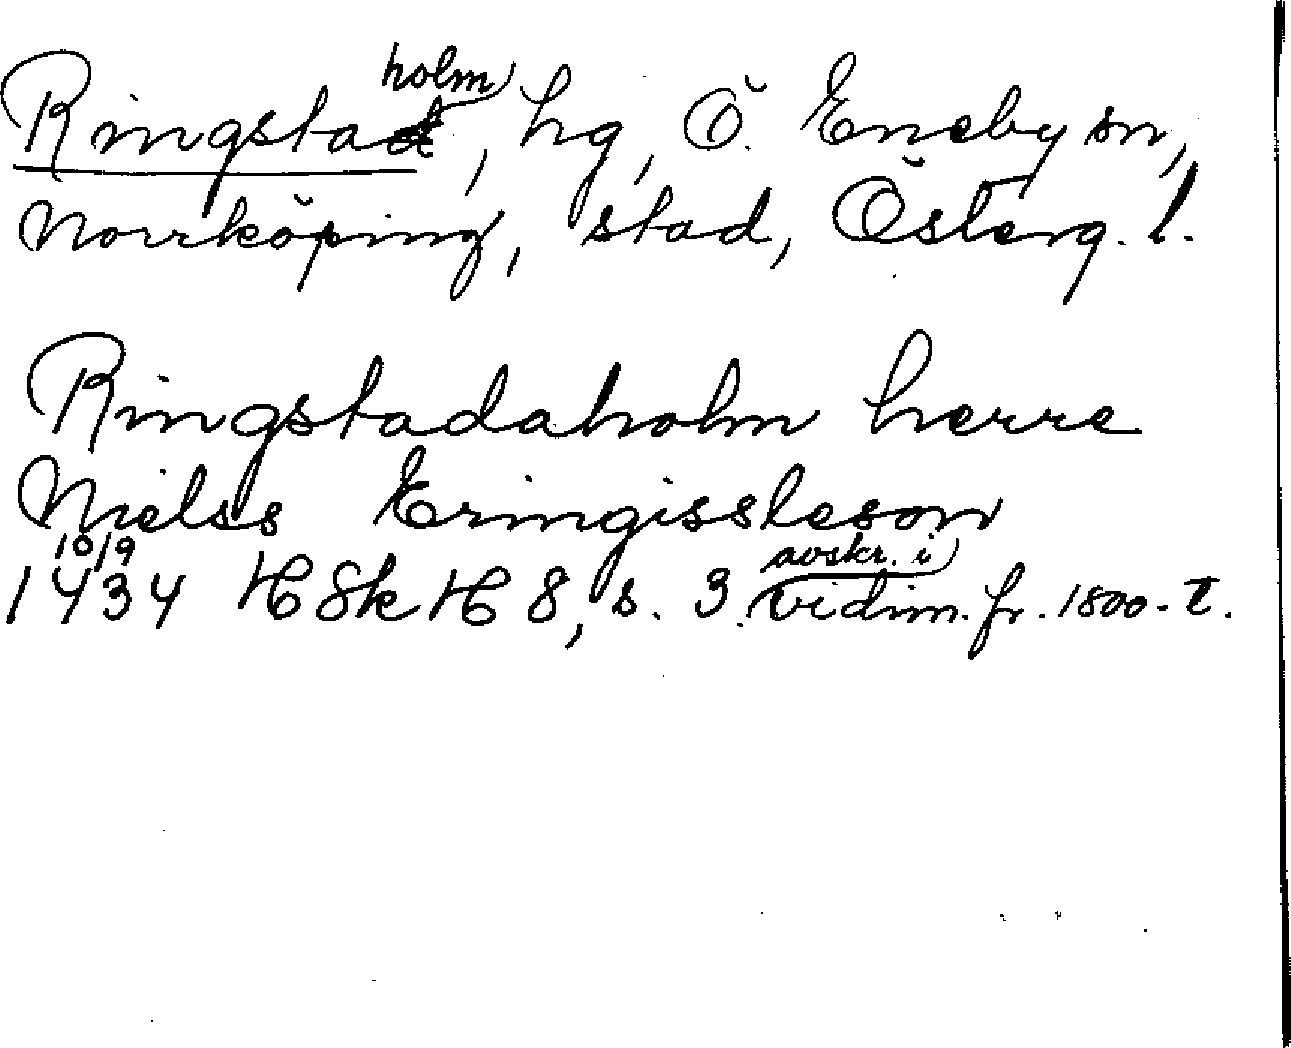 Ringstaholm, hg, Ö. Eneby sn,
Norrköping, stad, Österg. l.
Ringstadaholm herre
Nielss Eringissleson
1434 10/9 HSk H 8, s. 3. avskr. i vidim. fr. 1800-t.